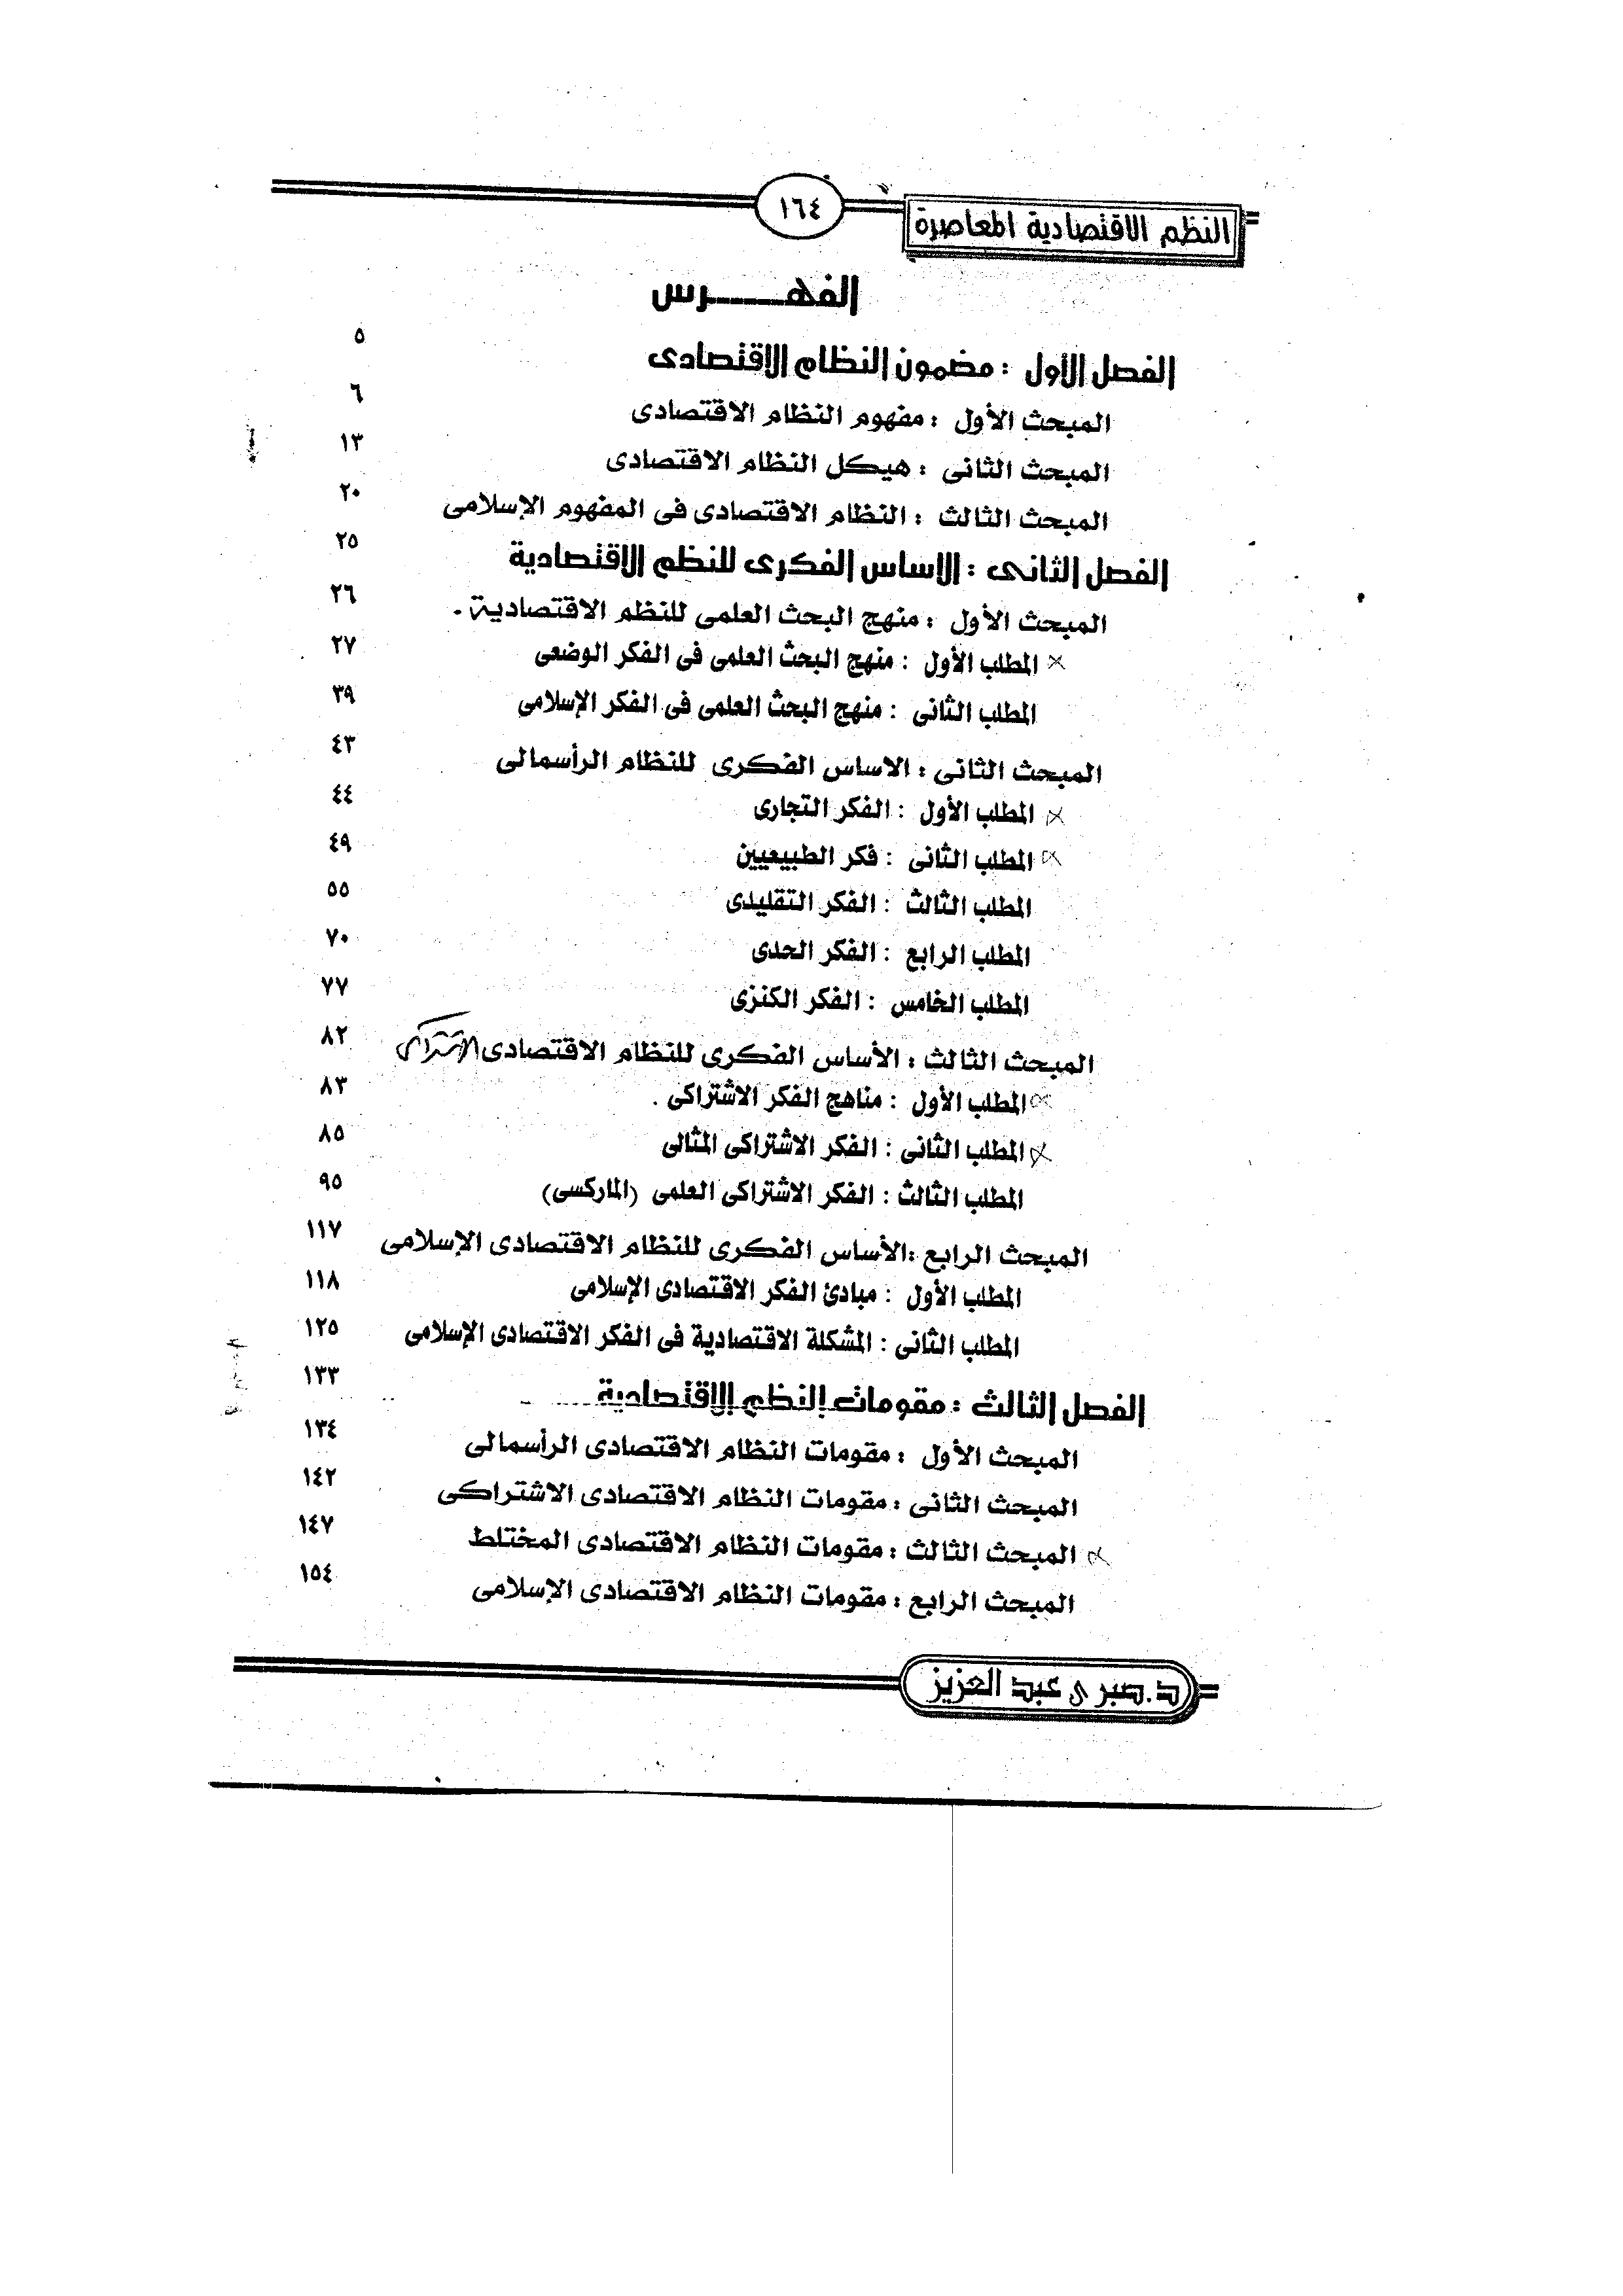 النظم الاقتصادية المعاصرة
١٦٤
الفهـــــرس
الفصل الأول : مضمون النظام الاقتصادى ٥
المبحث الأول : مفهوم النظام الاقتصادى ٦
المبحث الثانى : هيكل النظام الاقتصادى ١٣
المبحث الثالث : النظام الاقتصادى فى المفهوم الإسلامى ٢٠
الفصل الثانى : الاساس الفكرى للنظم الاقتصادية ٢٥
المبحث الأول : منهج البحث العلمى للنظم الاقتصادية . ٢٦
المطلب الأول : منهج البحث العلمى فى الفكر الوضعى ٢٧
المطلب الثانى : منهج البحث العلمى فى الفكر الإسلامى ٣٩
المبحث الثانى : الاساس الفكرى للنظام الرأسمالى ٤٣
المطلب الأول : الفكر التجارى ٤٤
المطلب الثانى : فكر الطبيعيين ٤٩
المطلب الثالث : الفكر التقليدى ٥٥
المطلب الرابع : الفكر الحدى ٧٠
المطلب الخامس : الفكر الكنزى ٧٧
المبحث الثالث : الأساس الفكرى للنظام الاقتصادى الاشتراكى ٨٢
المطلب الأول : مناهج الفكر الاشتراكى . ٨٣
المطلب الثانى : الفكر الاشتراكى المثالى ٨٥
المطلب الثالث : الفكر الاشتراكى العلمى (الماركسى) ٩٥
المبحث الرابع :الأساس الفكرى للنظام الاقتصادى الإسلامى ١١٧
المطلب الأول : مبادئ الفكر الاقتصادى الإسلامى ١١٨
المطلب الثانى : المشكلة الاقتصادية فى الفكر الاقتصادى الإسلامى ١٢٥
الفصل الثالث : مقومات النظم الاقتصادية ١٣٣
المبحث الأول : مقومات النظام الاقتصادى الرأسمالى ١٣٤
المبحث الثانى : مقومات النظام الاقتصادى الاشتراكى ١٤٢
المبحث الثالث : مقومات النظام الاقتصادى المختلط ١٤٧
المبحث الرابع : مقومات النظام الاقتصادى الإسلامى ١٥٤
د.صبرى عبد العزيز